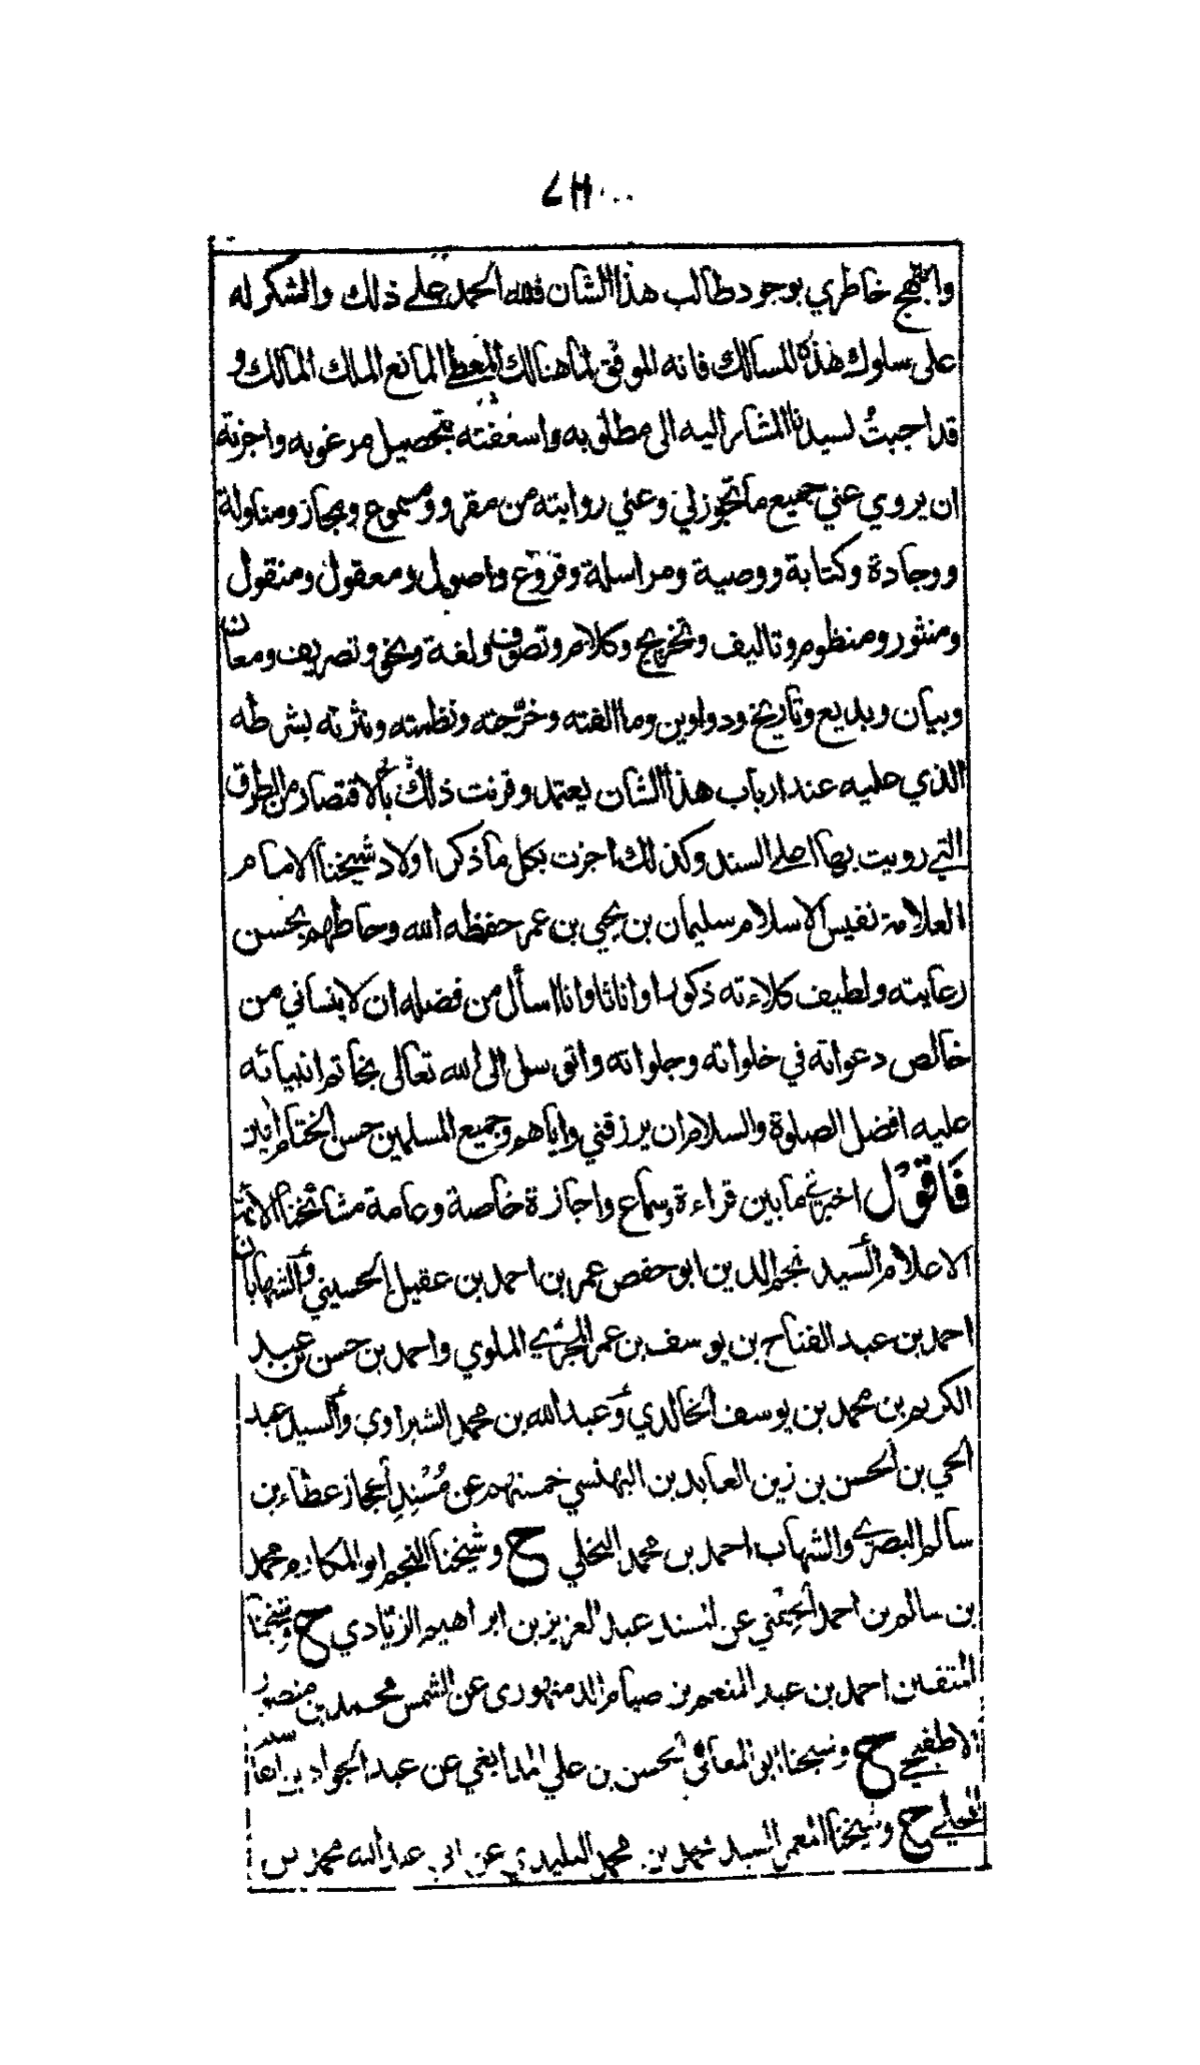 وابتهج خاطري بوجود طالب هذا الشان فلله الحمد على ذلك والشكر له
على سلوك هذه المسالك فانه الموفق لما هنالك المعطي المانع الملك المالك و
قد اجبتُ لسيدنا المشار اليه الى مطلوبه واسعفته بتحصيل مرغوبه واجزته
ان يروي عني جميع ما تجوز لي وعني روايته من مقرو ومسموع ومجاز ومناولة
ووجادة وكتابة ووصية ومراسلة وفروع واصول ومعقول ومنقول
ومنثور ومنظوم وتاليف وتخريج وكلام وتصوف ولغة ونحو وتصريف ومعان
وبيان وبديع وتاريخ ودواوين وما الفته وخرّجته ونظمته ونثرته بشرطه
الذي عليه عند ارباب هذا الشان يعتمد وقرنت ذلك بالاقتصار من الطرق
التي رويت بها اعلى السند وكذلك اجزت بكل ما ذكر اولاد شيخنا الامام
العلامة نفيس الاسلام سليمان بن يحيى بن عمر حفظه الله وحاطهم بحسن
رعايته ولطيف كلاءته ذكورا واناثا وانا اسأل من فضله ان لا ينساني من
خالص دعواته في خلواته وجلواته واتوسل الى الله تعالى بخاتم انبيائه
عليه افضل الصلوة والسلام ان يرزقني واياهم وجميع المسلمين حسن الختام امين
فَاقوْل اخبرني ما بين قراءة وسماع واجازة خاصة وعامة مشائخنا الائمة
الاعلام السيد نجم الدين ابو حفص عمر بن احمد بن عقيل الحسيني والشهابان
احمد بن عبد الفتاح بن يوسف بن عمر المجيري الملوي واحمد بن حسن بن عبد
الكريم بن محمد بن يوسف الخالدي وَعبد الله بن محمد الشبراوي والسيد عبد
الحي بن الحسن بن زين العابدين البهنسي خمستهم عن مُسْنِد الحجاز عبد الله بن
سالم البصري والشهاب احمد بن محمد النخلي ح وشيخنا النجم ابو المكارم محمد
بن سالم بن احمد الحفني عن المسند عبد العزيز بن ابراهيم الزيادي ح وشيخنا
المتقن احمد بن عبد المنعم بن صيام الدمنهوري عن الشمس محمد بن منصور
الاطفيحي ح وشيخنا ابو المعالي الحسن بن علي المدابغي عن عبد الجواد بن القاسم
المحلي ح وشيخنا المعمر السيد محمد بن محمد البليدي عن ابي عبد الله محمد بن